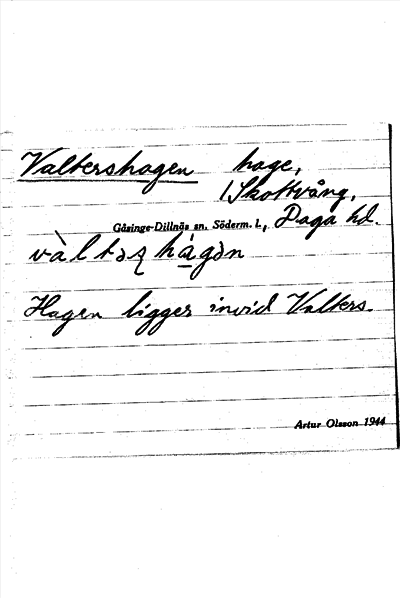 Valtershagen hage,
1 Skottvång,
Gåsinge-Dillnäs sn. Söderm. l., Daga hd.
vàltəʂhágən
Hagen ligger invid Valters.
Artur Olsson 1944